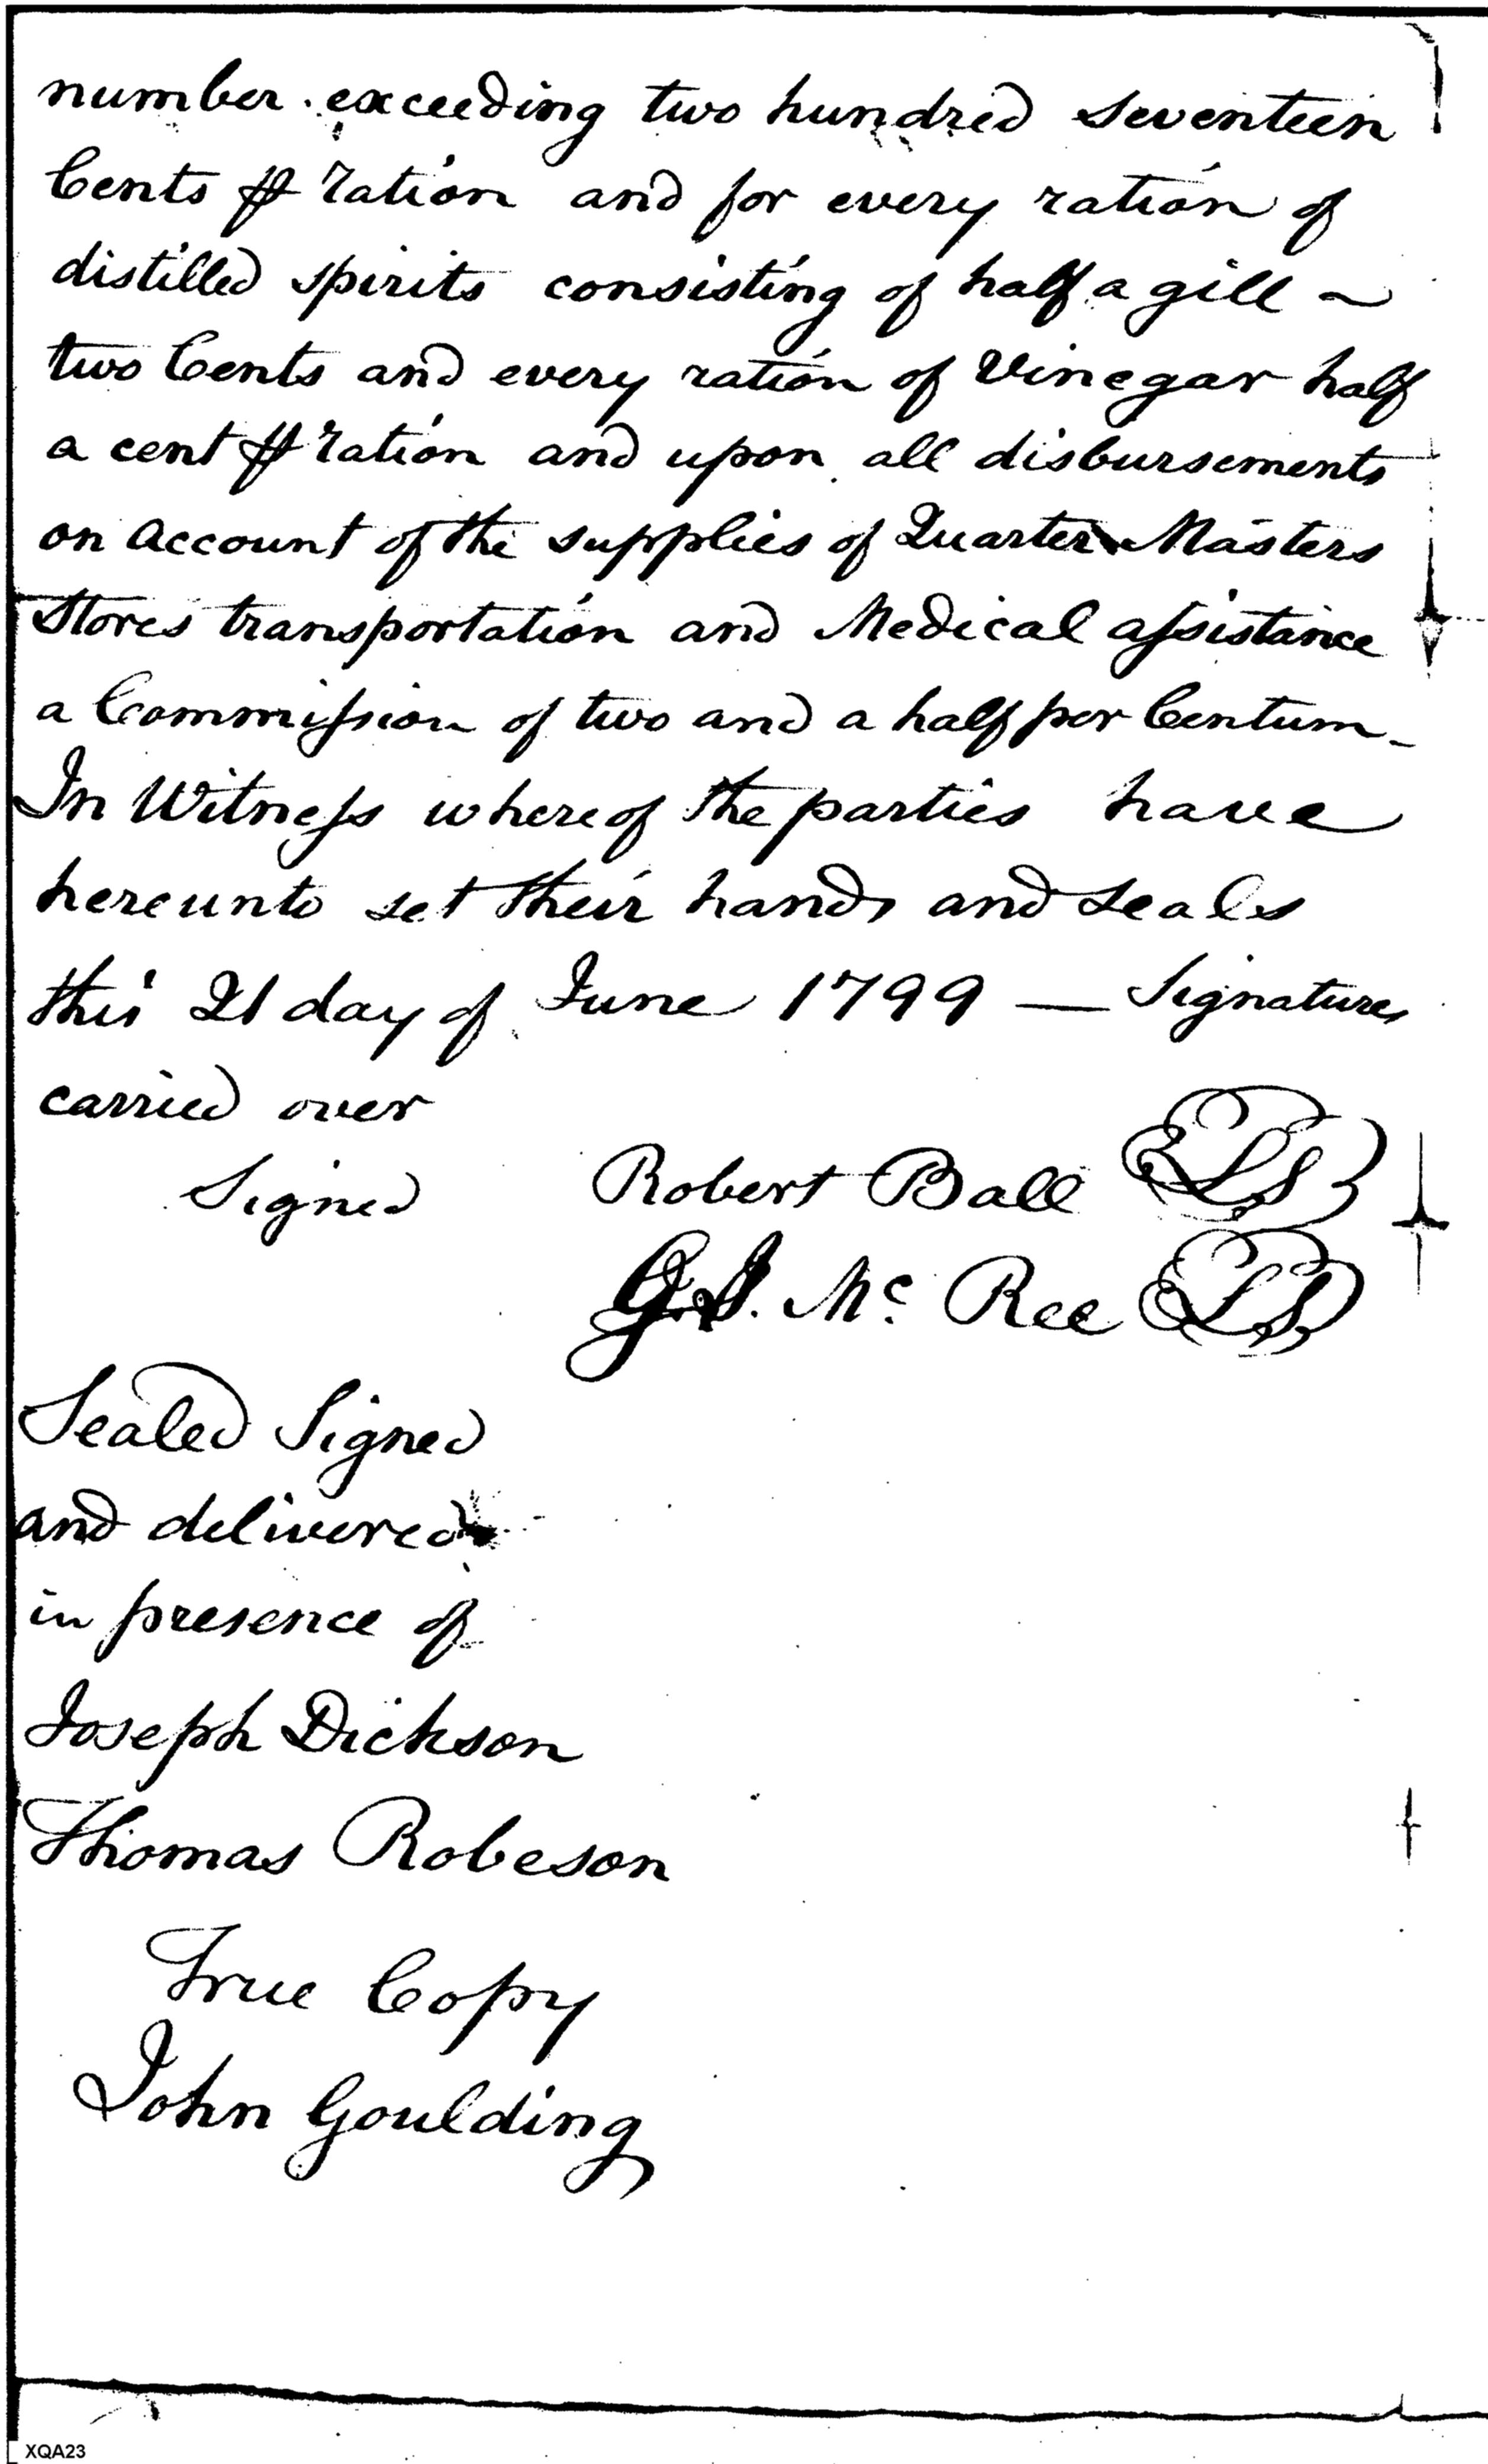 number exceeding two hundred seventeen
Cents ⅌ ration and for every ration of
distilled spirits consisting of half a gill ~
two Cents and every ration of Vinegar half
a cent ⅌ ration and upon all disbursements
on account of the supplies of Quarter Masters
Stores transportation and Medical assistance
a Commission of two and a half per Centum_
In Witness whereof the parties have
hereunto set their hands and seals
this 21 day of June 1799 — Signatures
carried over
Signed Robert Ball LS
G. J. Mc. Ree LS
Sealed Signed
and delivered
in presence of
Joseph Dickson
Thomas Robeson
True Copy
John Goulding
XQA23